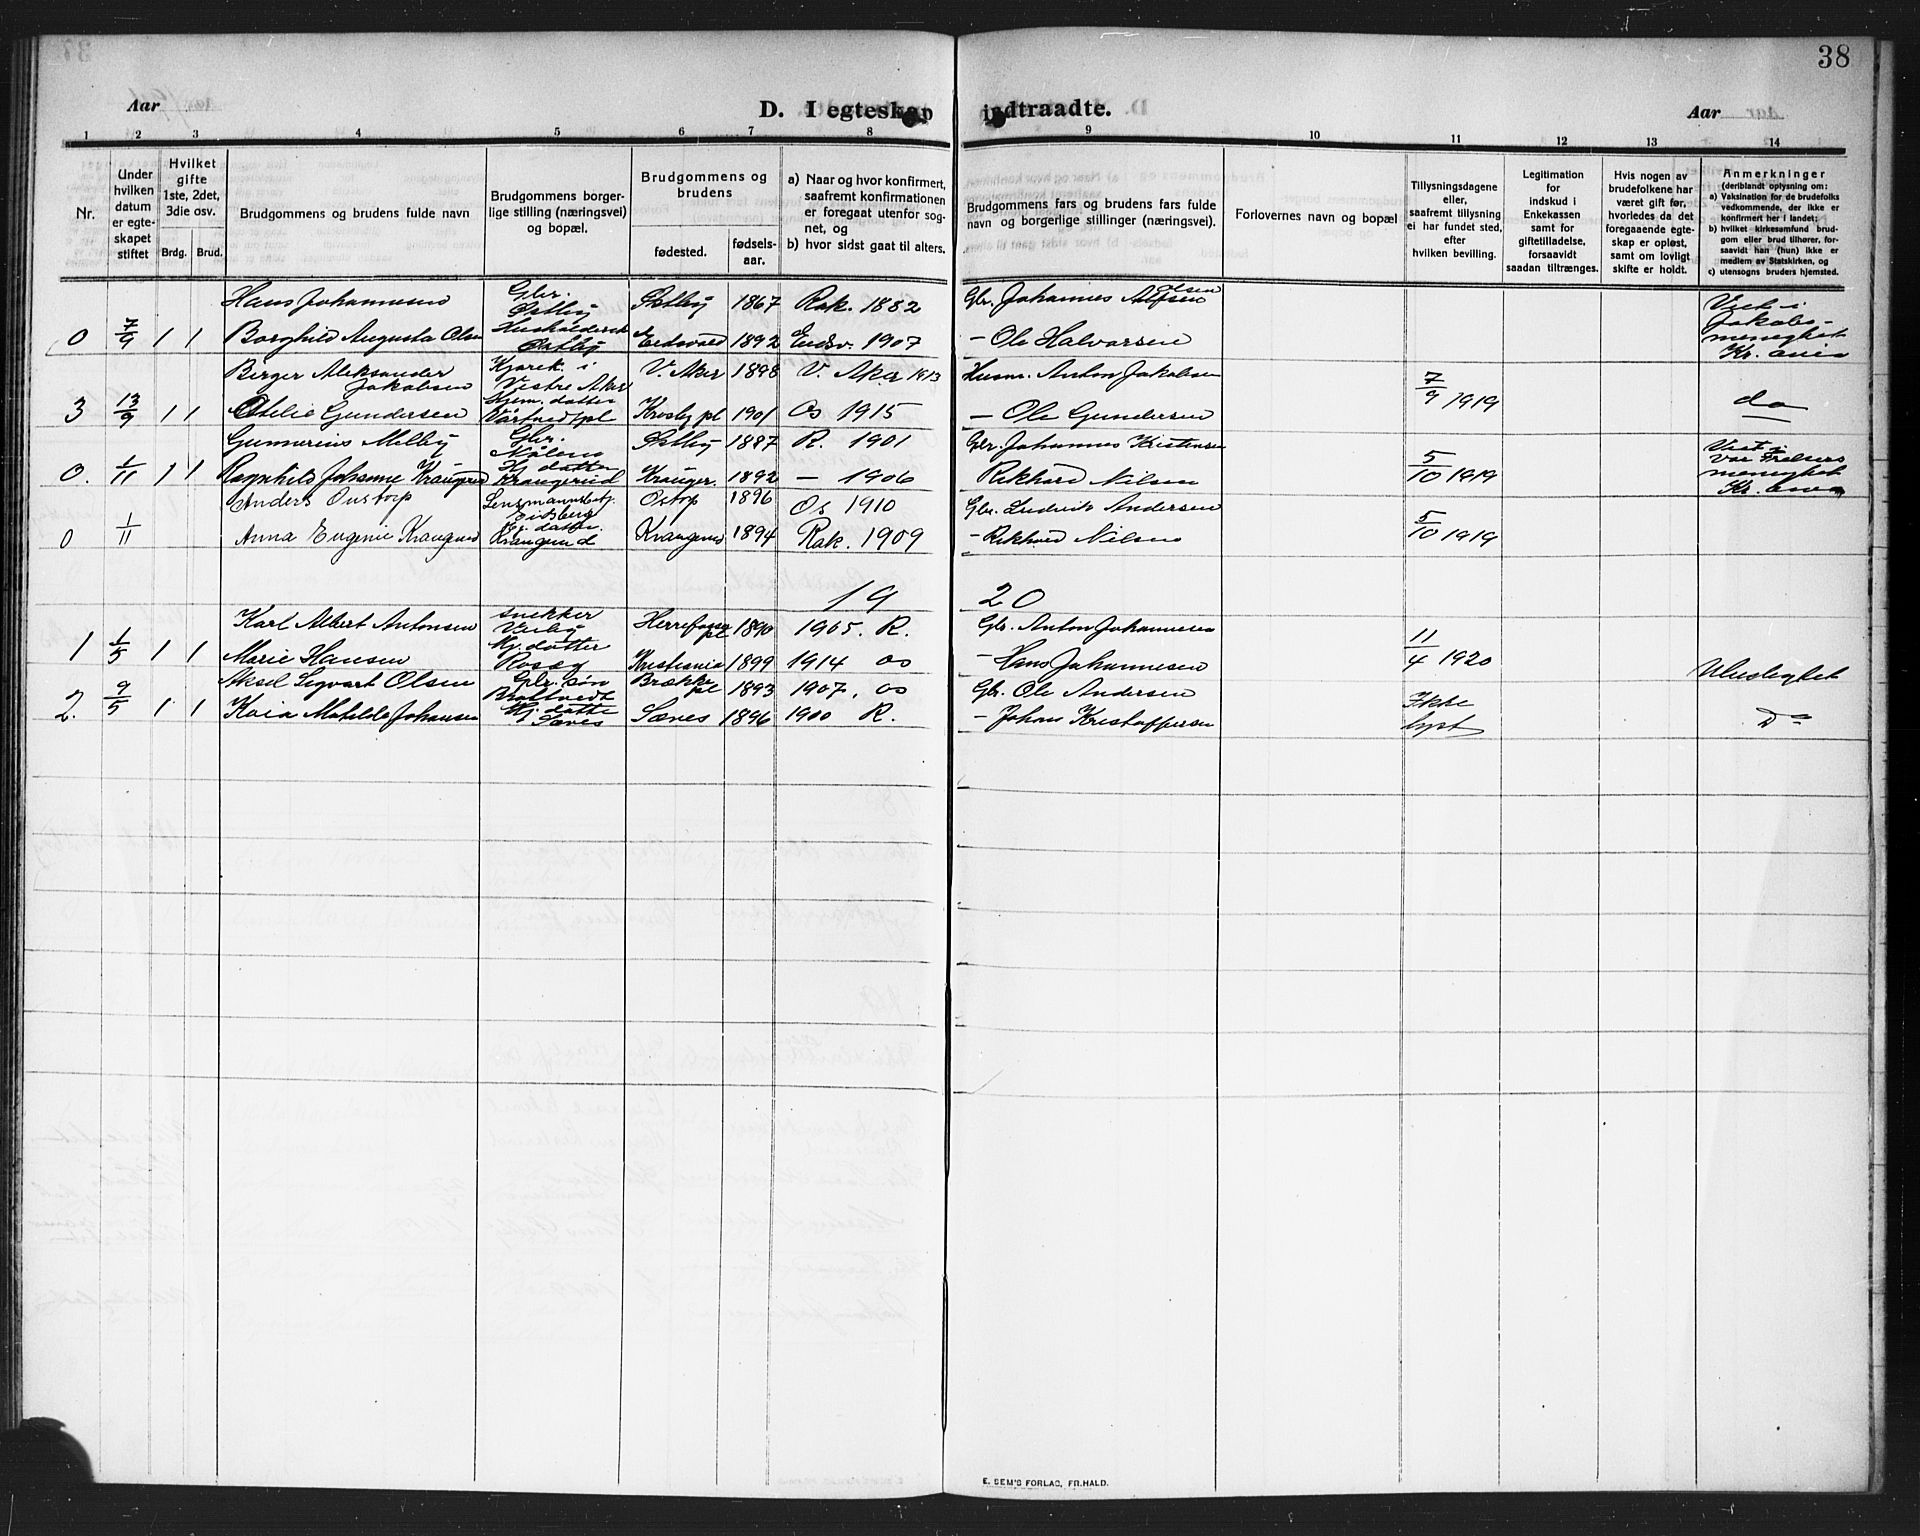 38
Aar
D. I egteskap indtraadte.
Aar
1 2 3 4 5 6 7 8 9 10 11 12 13 14
Nr.
Under hvilken datum er egteskapet stiftet
Hvilket gifte 1ste, 2det, 3die osv.
Brdg. Brud.
Brudgommens og brudens fulde navn
Brudgommens borgerlige stilling (næringsvei) og bopæl.
Brudgommens og brudens
fødested.
fødselsaar.
a) Naar og hvor konfirmert, saafremt konfirmationen er foregaat utenfor sognet, og
b) hvor sidst gaat til alters.
Brudgommens fars og brudens fars fulde navn og borgerlige stillinger (næringsvei).
Forlovernes navn og bopæl
Tillysningsdagene eller, saafremt tillysning ei har fundet sted, efter hvilken bevilling.
Legitimation for indskud i Enkekassen samt for giftetilladelse, forsaavidt saadan tiltrænges.
Hvis nogen av brudefolkene har været gift før, hvorledes da det foregaaende egteskap er opløst, samt om lovligt skifte er holdt.
Anmerkninger
(deriblandt oplysning om:
a) Vaksination for de brudefolks vedkommende, der ikke er konfirmert her i landet;
b) hvilket kirkesamfund brudgom eller brud tilhører, forsaavidt han (hun) ikke er medlem av Statskirken, og
c) utensogns bruders hjemsted.
Hans Johannesen Gbr. Østby Østby 1867 Rak. 1882 Gbr. Johannes Alfsen Olsen Viet i Jakobs-
0 7/9 1 1 Borghild Augusta Olsen Østby Eidsvold 1892 Eidsv. 1907 — Ole Halvorsen menighet Kr. ania
Berger Aleksander Jakobsen Vestre Aker V. Aker 1898 V. Aker 1913 Husm. Anton Jakobsen 7/9 1919
3 13/9 1 1 Otelie Gundersen Hjem. datter Krosby pl 1901 Os 1915 — Ole Gundersen do
Gunnerius Melby Gbr. Østby 1887 R. 1901 Gbr. Johannes Kristensen Viet i Vor Frelsers
0. 1/11 1 1 Ragnhild Johanne Kraugerud Hj. datter Kraugerud Krauger. 1892 — 1906 Rikhard Nilsen 5/10 1919 menighet Kr. ania
Anders Oustorp Lensmannsbetj. Eidsberg Ostop 1896 Os 1910 Gbr. Ludvik Andersen
0 1/11 Anna Eugenie Kraugerud Hj. datter. Kraugerud Kraugerud 1894 Rak. 1909 — Rikhard Nilsen 5/10 1919
19 20
Karl Albert Antonsen snekker Herrefosse pl 1890 1905. R. Gbr. Anton Johannesen
1 1/5 1 1 Marie Hansen Hj. datter Kristiania 1899 1914 Os — Hans Johannesen 11/4 1920
Aksel Sigvart Olsen Gbr. søn Brattvedt Brække pl 1893 1907. Os Gbr. Ole Andersen Ikke Uluslegtet
2. 9/5 1 1 Kaia Matilde Johansen Hj. datte Sæves Sæves 1896 1900 R. — Johans Kristoffersen lyst Do
E. SEM'S FORLAG, FR.HALD.